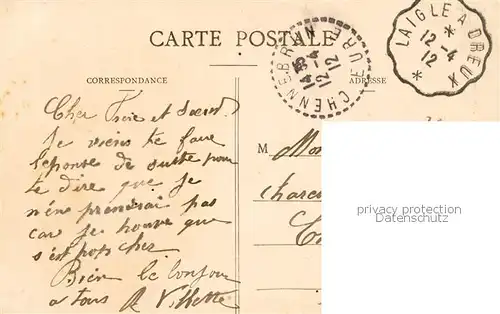 CARTE POSTALE
CORRESPONDANCE
Cher Frère et Soeur.
Je viens te faire
réponse de suite pour
te dire que je
n'en prendrai pas
car je trouve que
s'est pops cher
Bien le bonjour
a tous A Villette
CHENNEBRUN EURE
14 35
12 -4
12
LAIGLE A DREUX
12 -4
12
ADRESSE
M
charcu
privacy protection
Datenschutz